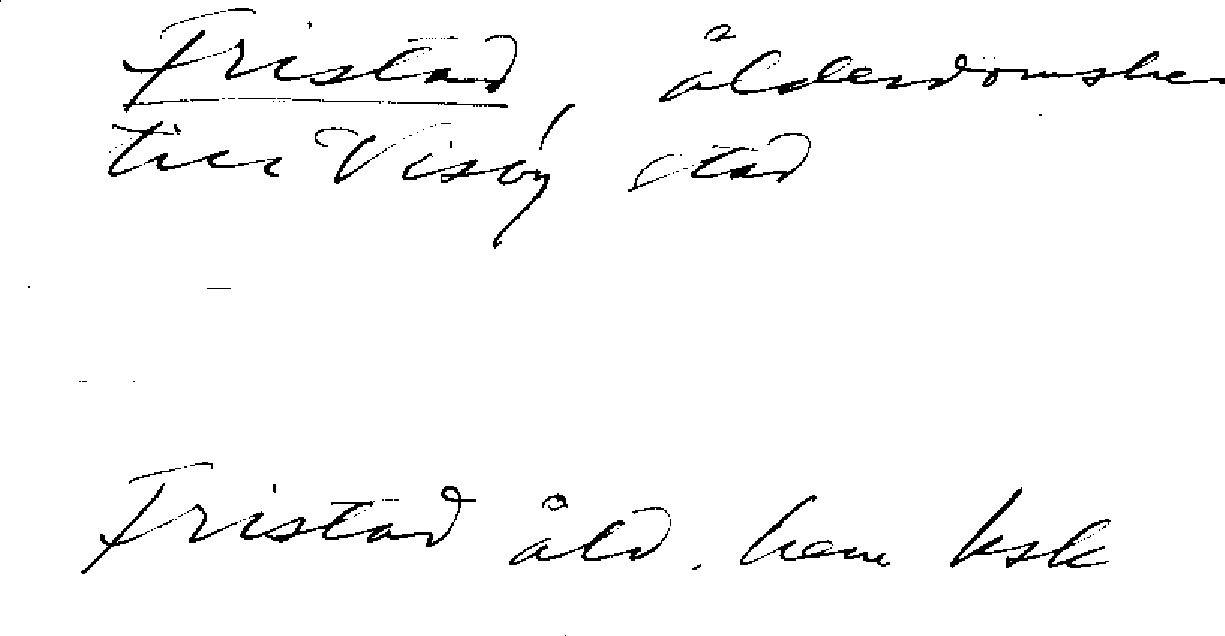 Fristad ålderdomshe
till Visby stad
Fristad åld. hem ksk